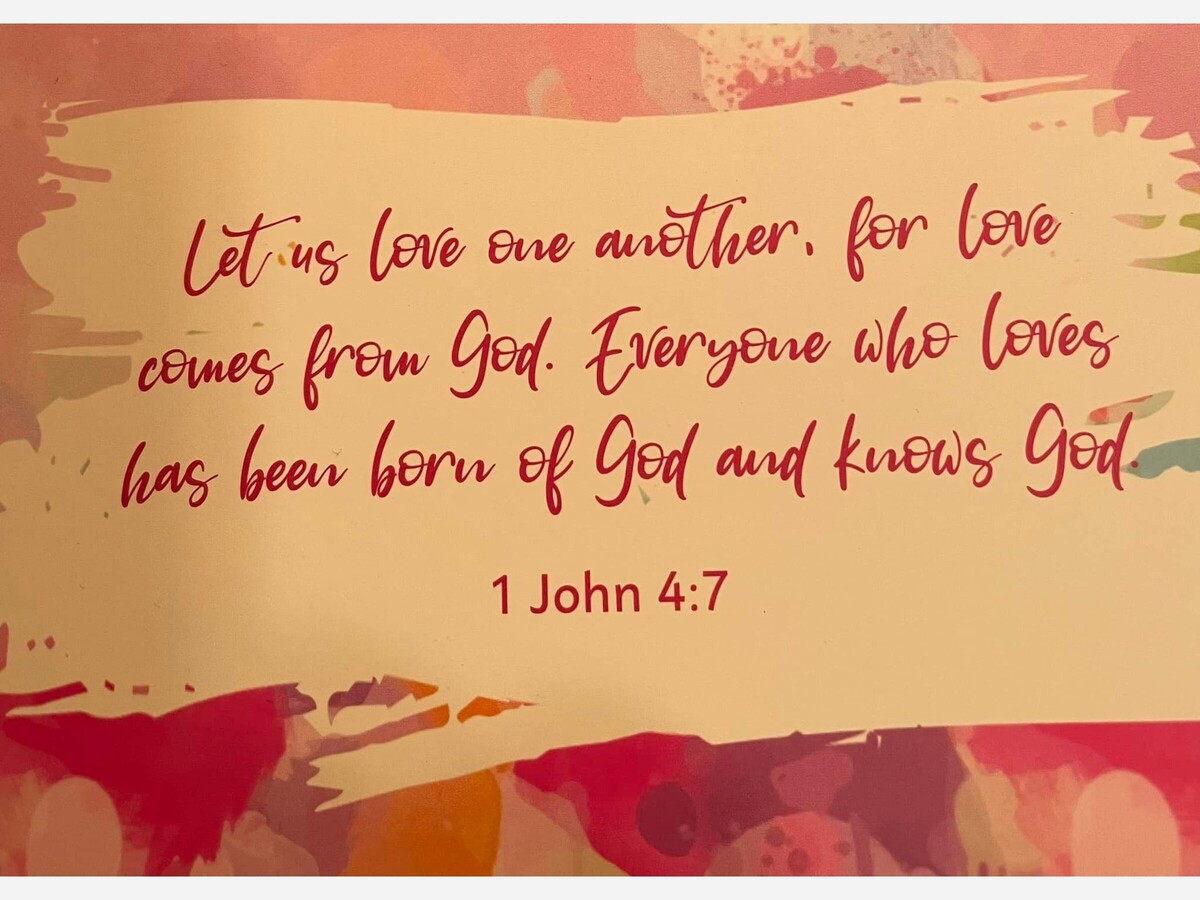 Let us love one another, for love
comes from God. Everyone who loves
has been born of God and knows God.
1 John 4:7